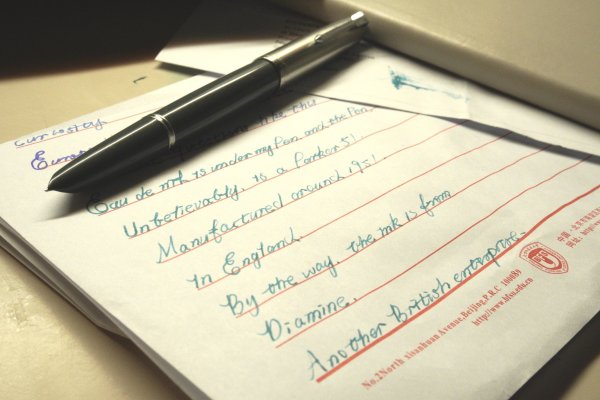 curiosity
Eau de nil is under my Pen and the Pen,
Unbelievably, is a Parker 51.
Manufactured around 1951
in England.
By the way, the ink is from
Diamine.
Another British enterprise.
中国·北京市
No.2North Xisanhuan Avenue,Beijing,P.R.C. 100089
http://www.bfsu.edu.cn